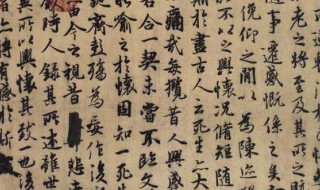 老之將至及其所之既
隨事遷感慨係之矣
俛仰之閒以為陳迹
不以之興懷況脩短隨
於盡古人云死生亦大
痛哉每攬昔人興感
若合一契未嘗不臨文
喻之於懷固知一死生
誕齊彭殤為妄作後
今之視昔悲夫
時人錄其所述雖世
所以興懷其致一也後
亦將有感於斯